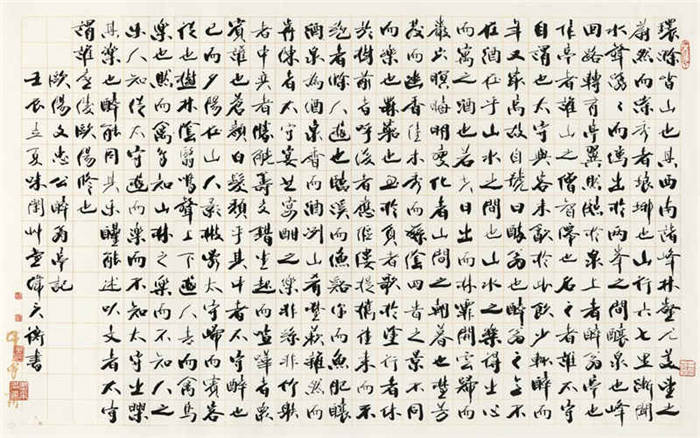 環滁皆山也其西南諸峰林壑尤美望之
蔚然而深秀者琅琊也山行六七里漸聞
水聲潺潺而瀉出於兩峰之間釀泉也峰
回路轉有亭翼然臨於泉上者醉翁亭也
作亭者誰山之僧智僊也名之者誰太守
自謂也太守與客來飲於此飲少輒醉而
年又最高故自號曰醉翁也醉翁之意不
在酒在乎山水之間也山水之樂得之心
而寓之酒也若夫日出而林霏開雲歸而
巖穴暝晦明變化者山間之朝暮也野芳
發而幽香佳木秀而繁陰四時之景不同
而樂亦無窮也至於負者歌於塗行者休
於樹前者呼後者應傴僂提攜往來而不
絕者滁人遊也臨溪而漁溪深而魚肥釀
泉為酒泉香而酒洌山肴野蔌雜然而
前陳者太守宴也宴酣之樂非絲非竹射
者中弈者勝觥籌交錯坐起而諠譁者眾
賓懽也蒼顏白髮頹乎其中者太守醉也
已而夕陽在山人影散亂太守歸而賓客
從也樹林陰翳鳴聲上下遊人去而禽鳥
樂也然而禽鳥知山林之樂而不知人之
樂人知從太守遊而樂而不知太守之樂
其樂也醉能同其樂醒能述以文者太守也
謂誰廬陵歐陽修也
歐陽文忠公醉翁亭記
壬辰立夏